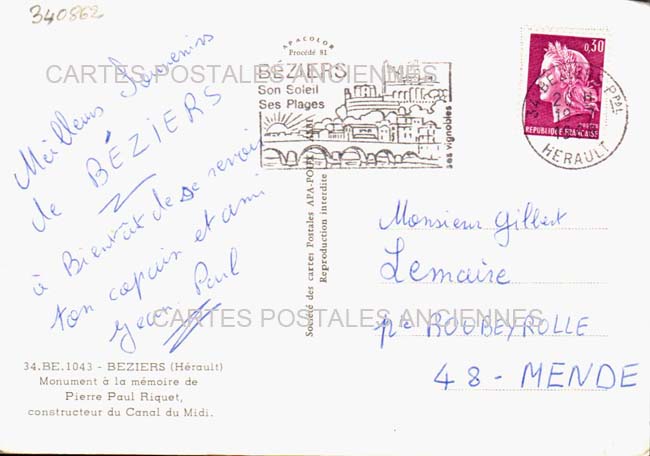 340862
Meilleurs Souvenirs
de BÉZIERS
à Bientôt de se revoir
ton copain et ami
Jean Paul
34.BE.1043 - BEZIERS (Hérault)
Monument à la mémoire de
Pierre Paul Riquet,
constructeur du Canal du Midi.
APACOLOR
Procédé 81
Société des cartes Postales APA-POUX
Reproduction interdite
BÉZIERS
Son Soleil
Ses Plages
ses vignobles
0,30
REPUBLIQUE FRANÇAISE
34 BEZIERS PPAL
HERAULT
Monsieur Gilbert
Lemaire
ROUBEYROLLE
48 - MENDE
CARTES POSTALES ANCIENNES
CARTES POSTALES ANCIENNES